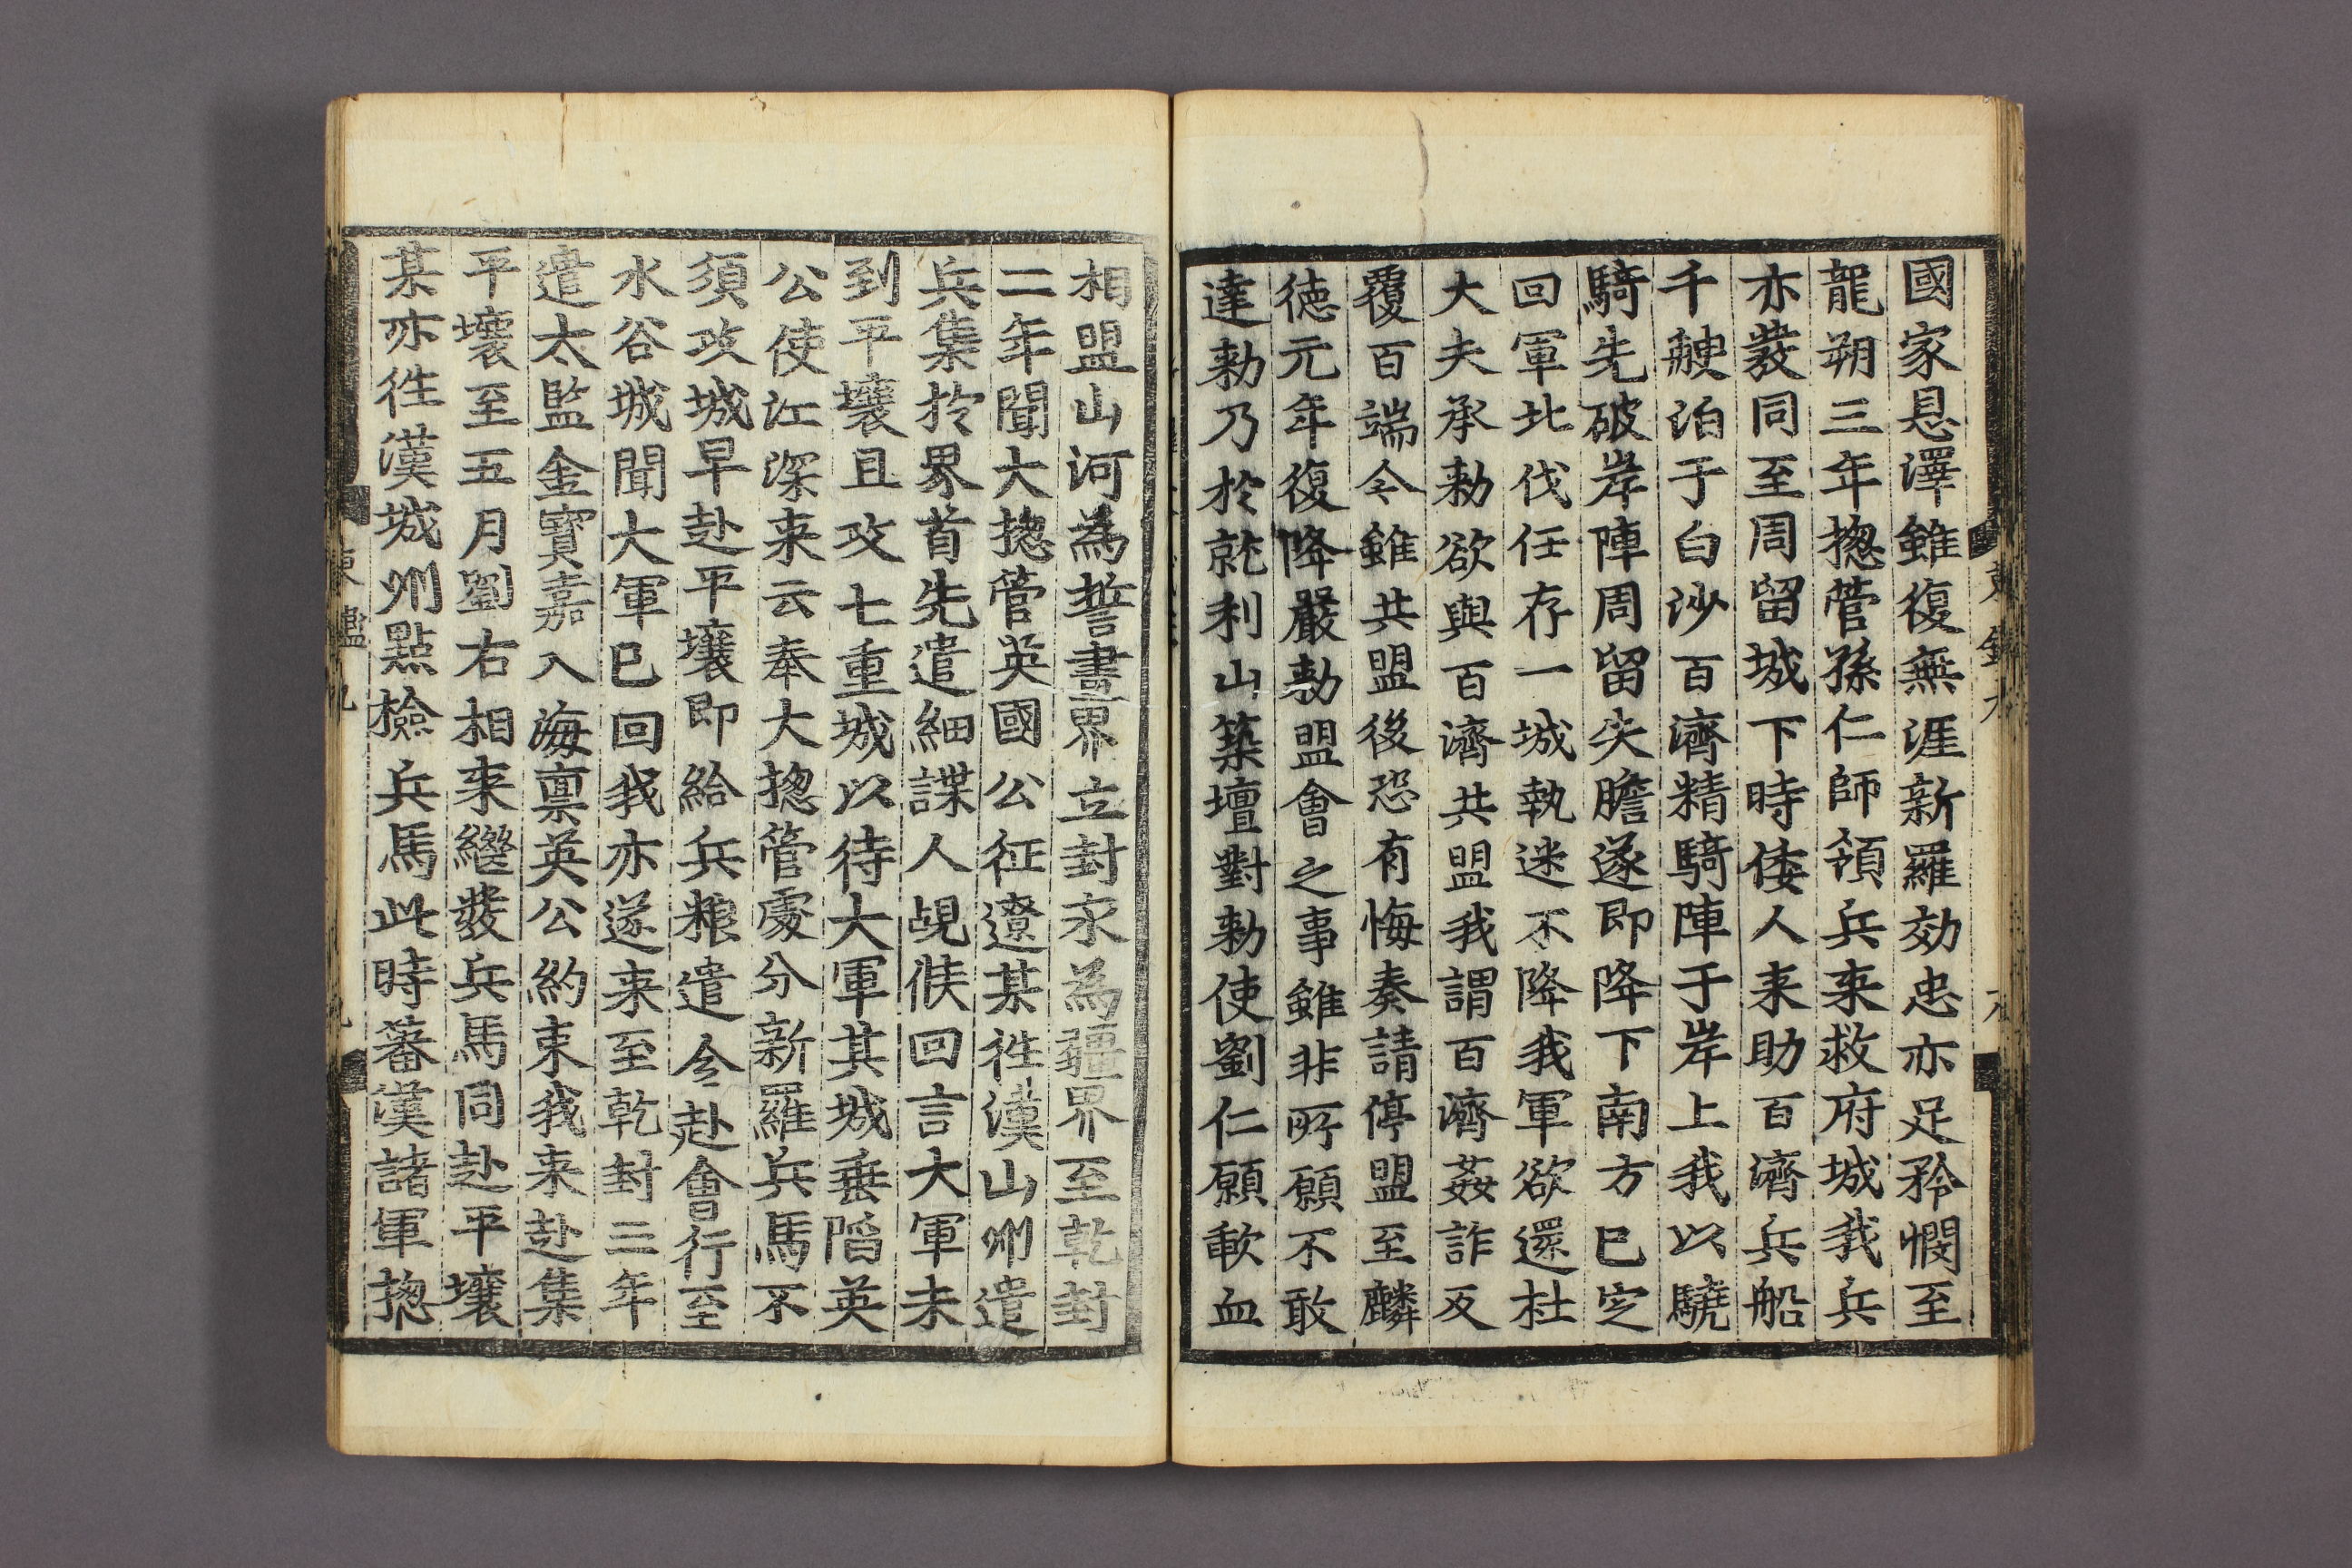 國家恩澤雖復無涯新羅効忠亦足矜憫至
龍朔三年揔管孫仁師領兵来救府城我兵
亦發同至周留城下時倭人来助百濟兵船
千艘泊于白沙百濟精騎陣于岸上我以驍
騎先破岸陣周留失膽遂即降下南方已定
回軍北伐任存一城執迷不降我軍欲還杜
大夫承勑欲與百濟共盟我謂百濟姦詐反
覆百端今雖共盟後恐有悔奏請停盟至麟
徳元年復降嚴勑盟會之事雖非所願不敢
達勑乃於就利山築壇對勑使劉仁願歃血
相盟山河為誓畫界立封永為疆界至乾封
二年聞大揔管英國公征遼某徃漢山州遣
兵集扵界首先遣細諜人覘候回言大軍未
到平壤且攻七重城以待大軍其城垂陷英
公使江深来云奉大揔管處分新羅兵馬不
須攻城早赴平壤即給兵粮遣令赴會行至
水谷城聞大軍已回我亦遂来至乾封三年
遣太監金寶嘉入海禀英公約束我来赴集
平壤至五月劉右相来繼發兵馬同赴平壤
某亦徃漢城州點檢兵馬此時蕃漢諸軍揔